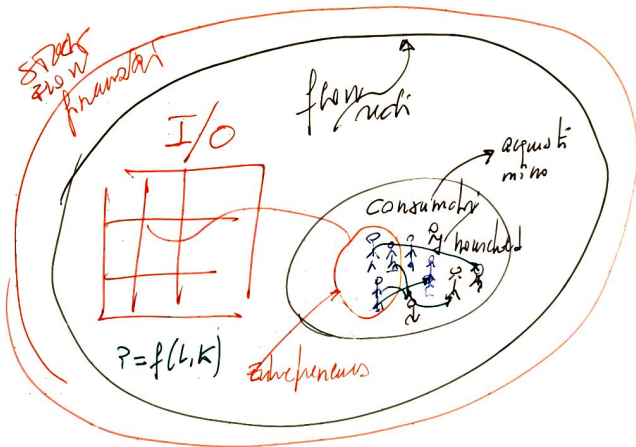 STOCK
FLOW
finanziari
flow
reali
I/O
acquisti
consumatori
household
P=f(L,K)
Entrepreneurs